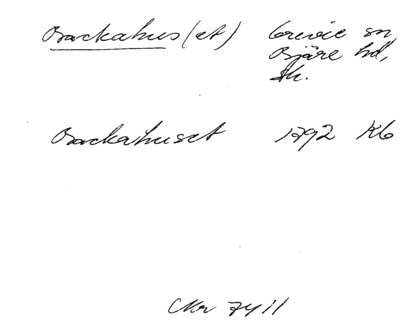 Backahus (et) Grevie sn,
Bjäre hd,
Sk.
Backahuset 1792 Kb